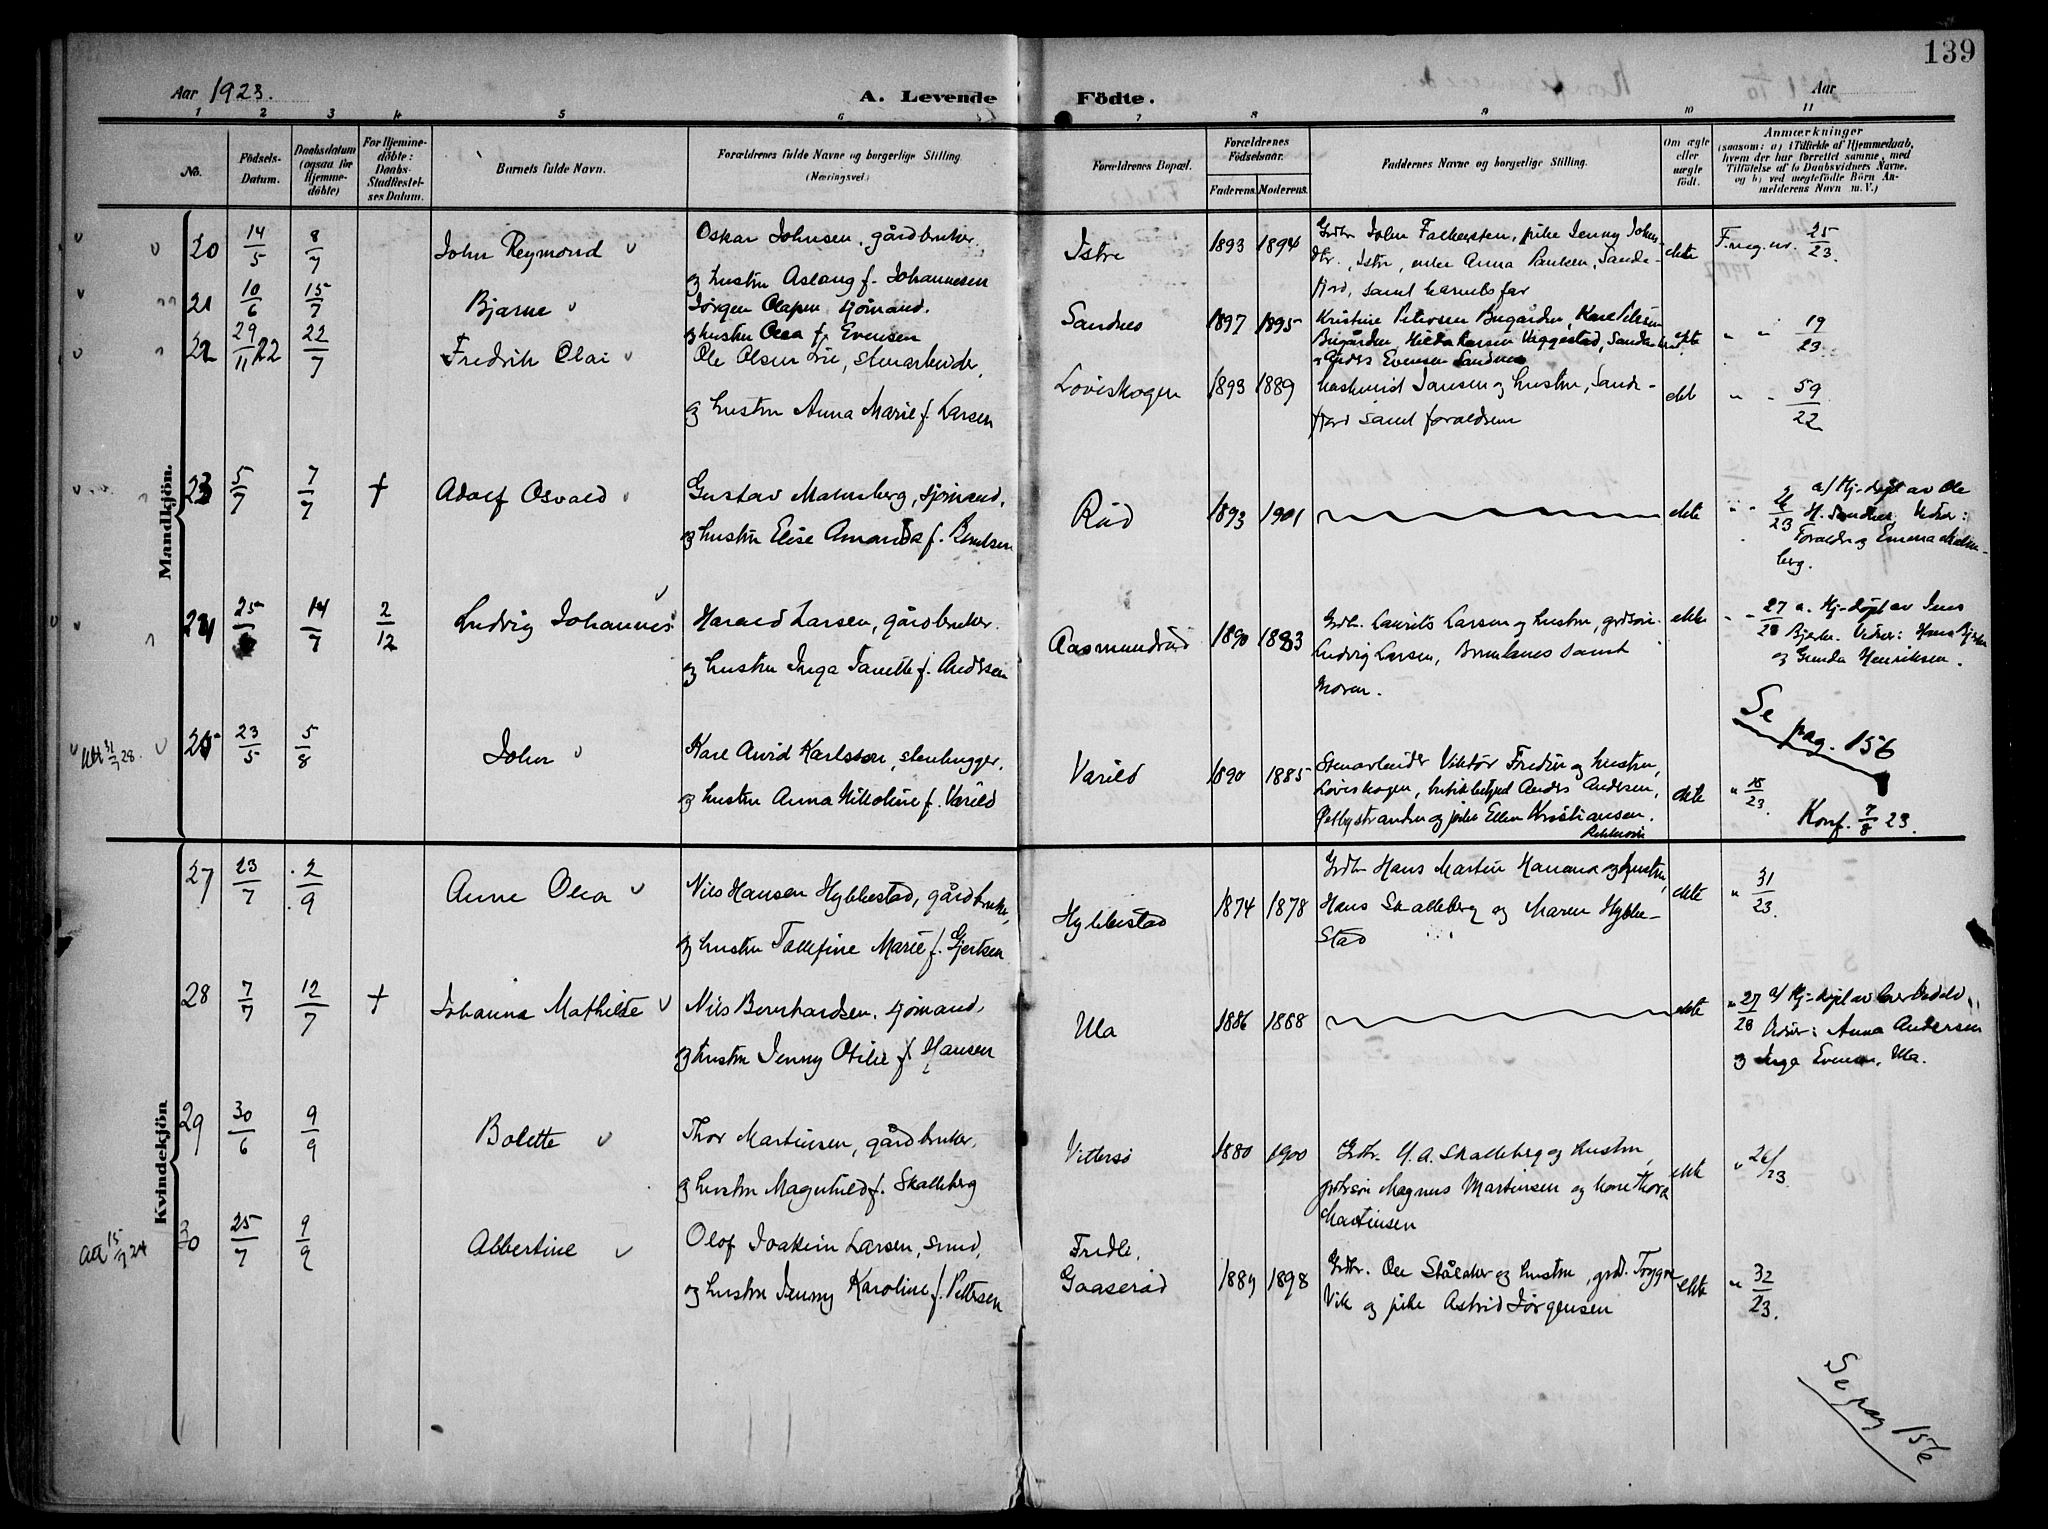 139
Aar 1923.
A. Levende Födte.
Aar
1 2 3 4 5 6 7 8 9 10 11
No.
Födsels-Datum.
Daabsdatum (ogsaa for Hjemme-döbte)
For Hjemme-döbte: Daabs-Stadfæstel-ses Datum.
Barnets fulde Navn.
Forældrenes fulde Navne og borgerlige Stilling. (Næringsvei.)
Forældrenes Bopæl.
Forældrenes Födselsaar.
Faderens. Moderens.
Faddernes Navne og borgerlige Stilling.
Om ægte eller uægte födt.
Anmærkninger
(saasom: a) i Tilfælde af Hjemmedaab, hvem der har forrettet samme, med Tilföielse af to Daabsvidners Navne. og b) ved uægtefödte Börn An-melderens Navn m. V.)
Mandkjön.
20 14/5 8/7 John Reymond Oskar Johnsen, gårdbruker,
og hustru Aslaug f. Johannesen
Istre 1893 1894 Grdbr. John Falkersten, pike Jenny Johns-
dtr., Istre, enke Anna Paulsen, Sande-
fjord, samt barnets far
ekte F.meg.nr. 25/23.
21 10/6 15/7 Bjarne Jörgen Olavsen sjömand.
og hustru Olea f. Evensen
Sandnes 1897 1895 Kristine Petersen Bugården, Kare Petersen
Bugården, Hilda Larsen Viggestad, Sande-
Anders Evensen Sandnes
ekte " " 19/23.
22 29/11 22 22/7 Fredrik Olai Ole Olsen Lie, stenarbeider,
og hustru Anna Marie f. Larsen
Löviskogen 1893 1889 Jansen og hustru, Sande-
fjord samt foraldrene
ekte " " 59/22
23 5/7 7/7 + Adolf Osvald Gustav Malmberg, sjömand,
og hustru Elise Amanda f. Berntsen
Röd 1893 1901 ekte " " /23 a/ Hj-döpt av Ole
H. Sandnes. Vidner:
Foraldre og Emma Malm-
berg.
24 25 14/7 2/12 Ludvig Johannes Harald Larsen, gårdbruker.
og hustru Inga Janette f. Andersen
Aasmundröd 1890 1893 Grdbr. Laurits Larsen og hustru, grdsön
Ludvig Larsen, Brunlanes samt
moren.
ekte " " 27/23 a. Hj-döpt av Jens
Bjerke. Vidner: Hans Bjerke
og Gunda Henriksen.
Se pag. 156
25 23/5 5/8 John Karl Arvid Karlsson, stenhugger.
og hustru Anna Nikoline f. Varild
Varild 1890 1885 Stenarbeider Viktor Fredin og hustru,
Löviskogen, butikbetjent Anders Andersen,
Östbystranden og pike Ellen Kristiansen.
ekte " 18/23. Konf. 7/8 23.
Utt 31/7 28.
Kvindekjön
27 23/7 2/9 Anne Olea Nils Hansen Hybbestad, gårdbruker,
og hustru Tollefine Marie f. Gjertsen
Hybbestad 1874 1878 Grdbr Hans Martin Hanana og hustru,
Hans Skalleberg og Maren Hybbe-
stad
ekte " 31/23.
28 7/7 12/7 + Johanna Mathilde Nils Bernhardsen, sjömand,
og hustru Jenny Otilie f. Hansen
Ula 1886 1888 ekte " 27/23 a/ Hj-döpt av
Vidner: Anna Andersen
og Inga Evensen, Ula.
29 30/6 9/9 Bolette Thor Martinsen, gårdbruker,
og hustru Magnhild f. Skalleberg
Vittersö 1880 1900 Grdbr. H. A. Skalleberg og hustru,
grdsön Magnus Martinsen og kone Thora
Martinsen
ekte " 26/23.
30 25/7 9/9 Abbertine Olof Joakim Larsen, smed,
og hustru Jenny Karoline f. Pettersen
Fredli, Gaaseröd 1889 1898 Grdbr. Ole Stålaker og hustru, grdb. Trygve
Vik og pike Astrid Jörgensen
ekte " 32/23.
Att 15/7 24
Se pag 156